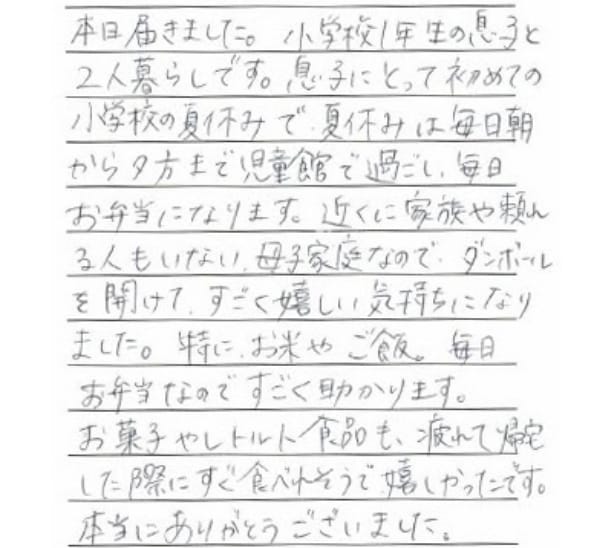 本日届きました。小学校1年生の息子と
2人暮らしです。息子にとって初めての
小学校の夏休みで、夏休みは毎日朝
から夕方まで児童館で過ごし、毎日
お弁当になります。近くに家族や頼れ
る人もいない、母子家庭なので、ダンボール
を開けて、すごく嬉しい気持ちになり
ました。特に、お米やご飯。毎日
お弁当なのですごく助かります。
お菓子やレトルト食品も、疲れて帰宅
した際にすぐ食べれそうで嬉しかったです。
本当にありがとうございました。